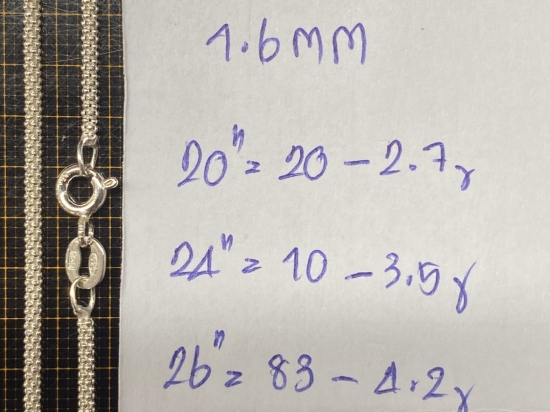 1.6MM
20"= 20 - 2.7g
24"= 10 - 3.5g
26"= 83 - 4.2g